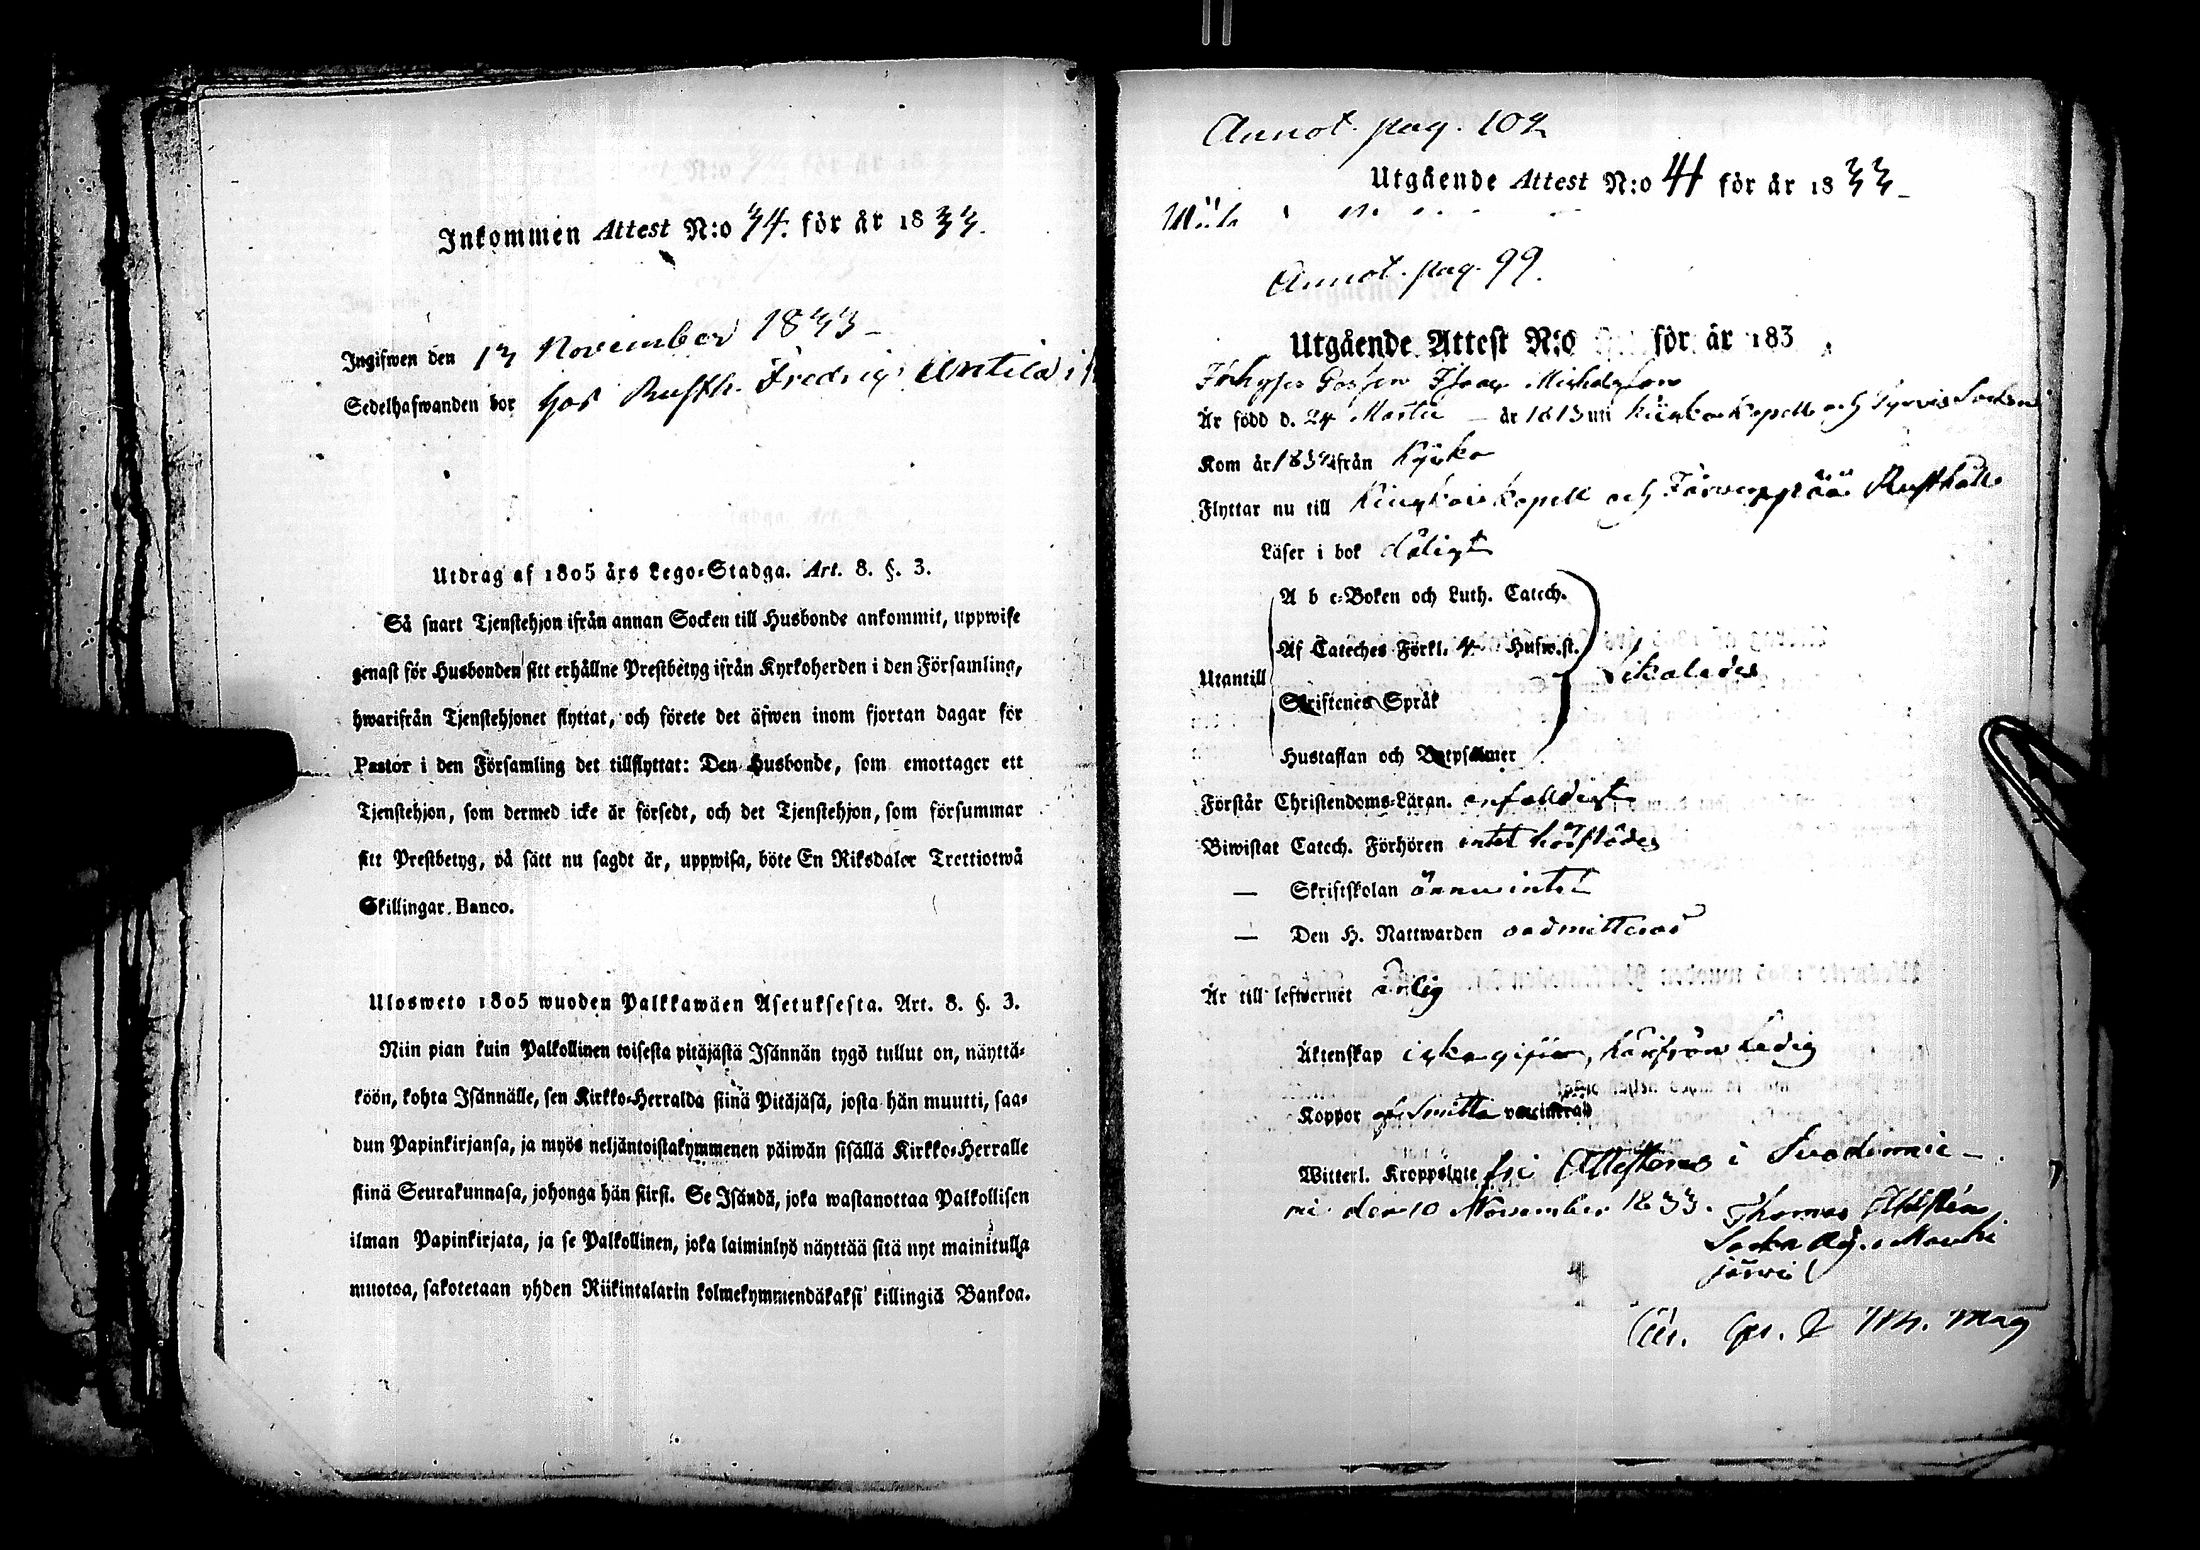 Inkommen Attest N:o 34. för år 1833.
Ingifwen den 13 November 1833 –
Sedelhafwanden bor hos Rusth. Fredrig Antila i
Utdrag af 1805 års Lego-Stadga. Art. 8. §. 3.
Så snart Tjenstehjon ifrån annan Socken till Husbonde ankommit, uppwise
genast för Husbonden sitt erhållne Prestbetyg ifrån Kyrkoherden i den Församling,
hwarifrån Tjenstehjonet flyttat, och förete det äfwen inom fjortan dagar för
Pastor i den Församling det tillflyttat: Den Husbonde, som emottager ett
Tjenstehjon, som dermed icke är försedt, och det Tjenstehjon, som försummar
sitt Prestbetyg, på sätt nu sagdt är, uppwisa, böte En Riksdaler Trettiotwå
Skillingar Banco.
Ulosweto 1805 wuoden Palkkawäen Asetuksesta. Art. 8. §. 3.
Niin pian kuin Palkollinen toisesta pitäjästä Isännän tygö tullut on, näyttä-
köön, kohta Isännälle, sen Kirkko-Herralda siinä Pitäjäsä, josta hän muutti, saa-
dun Papinkirjansa, ja myös neljäntoistakymmenen päiwän sisällä Kirkko-Herralle
siinä Seurakunnasa, johonga hän siirsi. Se Isändä, joka wastanottaa Palkollisen
ilman Papinkirjata, ja se Palkollinen, joka laiminlyö näyttää sitä nyt mainitulla
muotoa, sakotetaan yhden Riikintalarin kolmekymmendäkaksi killingiä Bankoa.
Annot. pag. 102
Utgående Attest N:o 41 för år 1833 –
Annot. pag. 99.
Utgående Attest N:o för år 183
Gossen Isaac Michelsson
Är född d. 24 Martii – år 1813 uti kapell och Tyrvis Socken
Kom år 1832 ifrån
Flyttar nu till kapell och Järvenpää Rusthåll
Läser i bok dåligt
A b c-Boken och Luth. Catech.
Af Cateches Förkl. Husw.st.
Utantill likaledes
Skriftenes Språk
Hustaflan och Botpsalmer
Förstår Christendoms-Läran. enfalldigt
Biwistat Catech. Förhören intet härstädes
— Skriftskolan ännu intet
— Den H. Nattwarden oadmitterad
Är till lefwernet ärlig
Äktenskap icke gifter, härifrån ledig
Koppor af Smitta vaccinerad
Witterl. Kroppslyte fri Attesteras i Suodennie-
mi den 10 November 1833. Thomas
Sockn Adj. i Mouhi
järvi